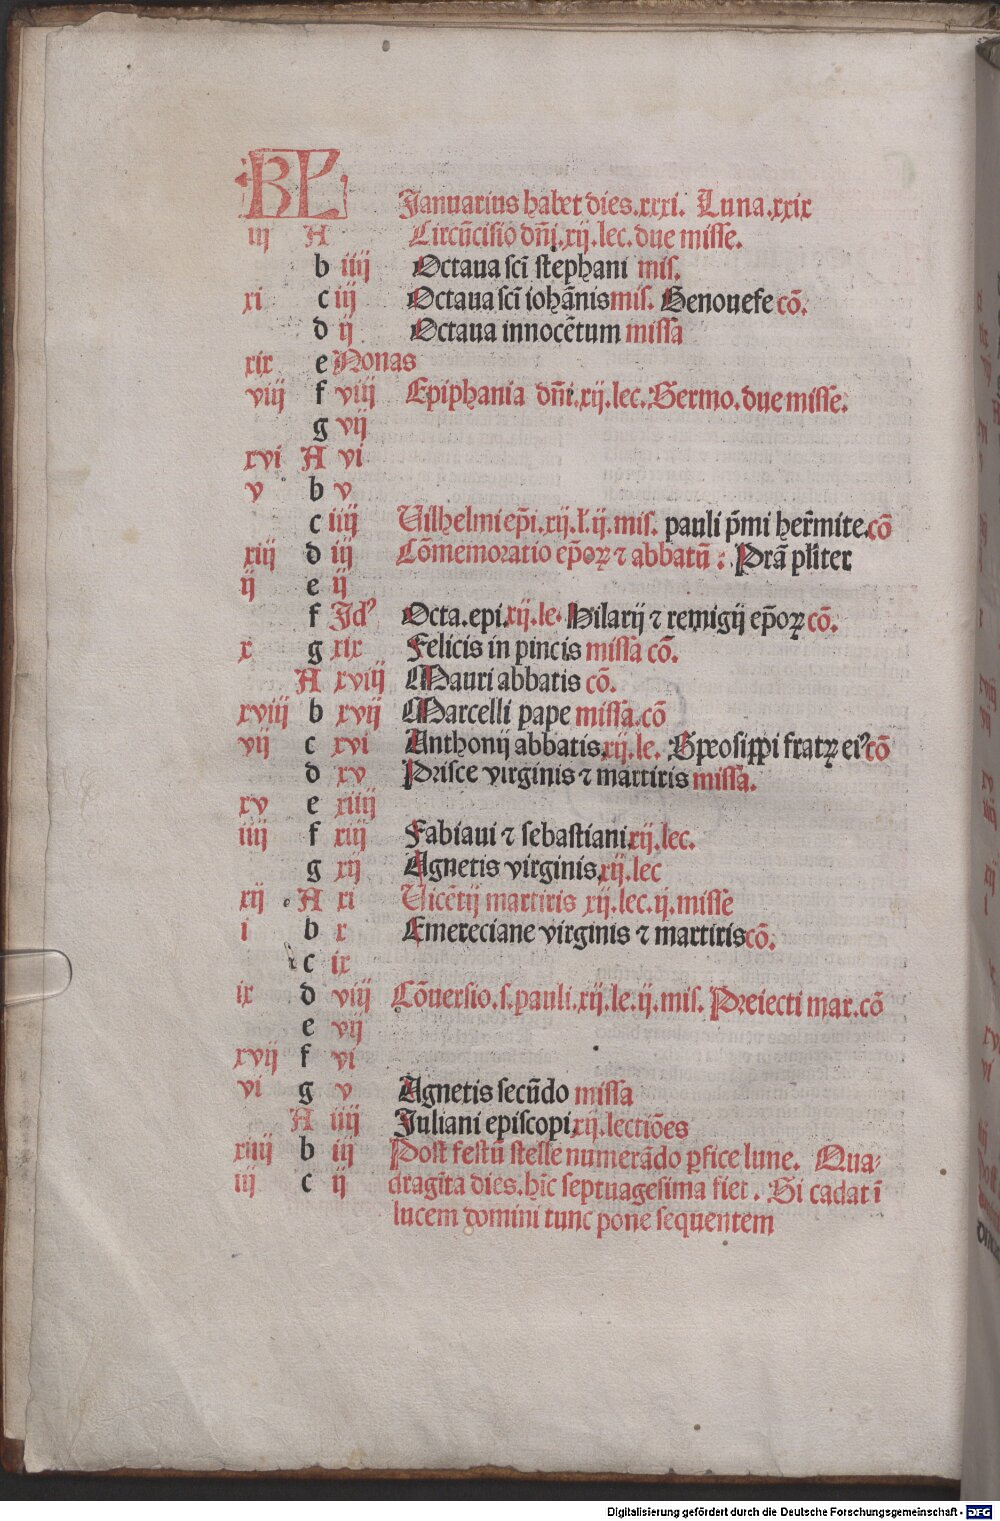 KL Januarius habet dies.xxxi. Luna.xxix
iij A Circūcisio dn̄i.xij.lec.due misse.
b iiij Octaua sci̅ stephani mis.
xi c iij Octaua sci̅ iohānis mis. Genouefe cō.
d ij Octaua innocētum missa
xix e Nonas
viij f viij Epiphania dn̄i.xij.lec.Sermo.due misse.
g vij
xvi A vi
v b v
c iiij Uilhelmi ep̄i.xij.l.ij.mis. pauli p̄mi her̄mite.cō
xiij d iij Cōmemoratio ep̄oꝝ ⁊ abbatū : Prā pl̄iter
ij e ij
f Jdꝰ Octa.epi.xij.le. Hilarij ⁊ remigij ep̄oꝝ cō.
x g xix Felicis in pincis missa cō.
A xviij Mauri abbatis cō.
xviij b xvij Marcelli pape missa.cō
vij c xvi Anthonij abbatis.xij.le. Speosippi fratꝝ eiꝰ cō
d xv Prisce virginis ⁊ martiris missa.
xv e xiiij
iiij f xiij Fabiaui ⁊ sebastiani.xij.lec.
g xij Agnetis virginis.xij.lec
xij A xi Uicētij martiris xij.lec.ij.misse
i b x Emereciane virginis ⁊ martiris cō.
c ix
ix d viij Cōuersio.s.pauli.xij.le.ij.mis. Preiecti mar.cō
e vij
xvij f vi
vi g v Agnetis secūdo missa
A iiij Juliani episcopi.xij.lectiōes
xiiij b iij Post festū stelle numerādo ꝑfice lune. Qua-
iij c ij dragīta dies.hīc septuagesima fiet. Si cadat ī
lucem domini tunc pone sequentem
Digitalisierung gefördert durch die Deutsche Forschungsgemeinschaft - DFG